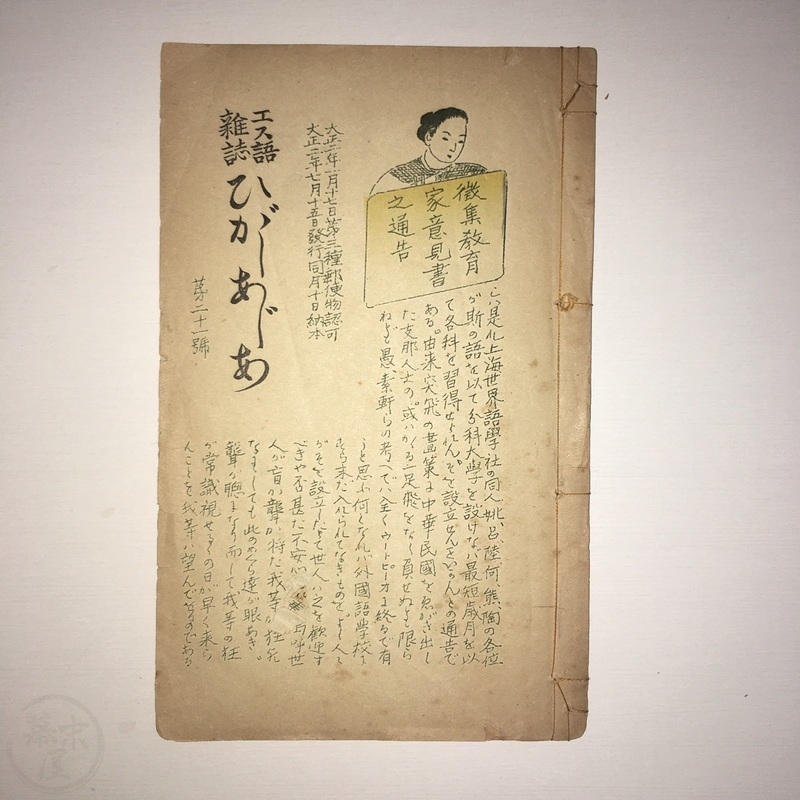 徴集教育
家意見書
之通告
こハ是レ上海世界語學社の同人姚、呂、陸、何、熊、陶の各位
が斯の語を以て分科大學を設けなバ最短歳月を以
て各科を習得せられん。そを設立せんといふ人との通告で
ある。由来突飛の蓋策ハ中華民國をゑがき出し
た支那人士の。或ハかゝる一足飛をなし負せぬよも限ら
ねども愚素軒らの考へでハ全くウートピーオに終るで有
うと思ふ何となれバ外國語學校に
すら未だ入れられてなきものを。よし人々
がそを設立したとて世人ハ之を歡迎す
べきや否甚だ不安心 嗚呼世
人が盲か聾か将た我等が狂死
なすしても此のめくら達が眼あき。
聾が聰となり而して我等の狂
が常識視せらるの日が早く来ら
んことを我等ハ望んで居るのである
大正二年一月十七日第三種郵便物認可
大正二年七月十五日發行同月十日納本
エス語
雜誌
ひがしあじあ
第二十一號
幕末
屋